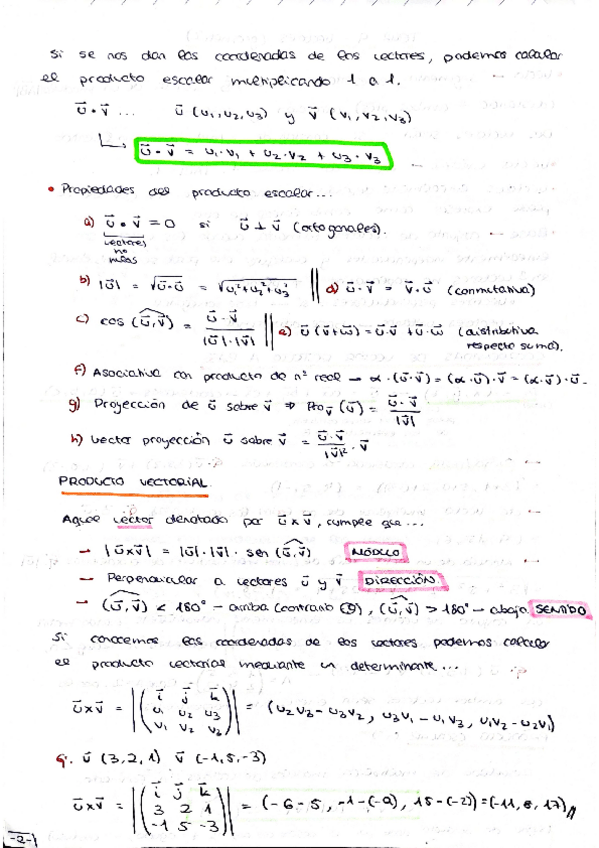 Si se nos dan las coordenadas de los vectores, podemos calcular
el producto escalar multiplicando 1 a 1.
u⃗ • v⃗ ... u⃗ (u₁, u₂, u₃) y v⃗ (v₁, v₂, v₃)
u⃗ • v⃗ = u₁·v₁ + u₂·v₂ + u₃·v₃
• Propiedades del producto escalar...
a) u⃗ • v⃗ = 0 si u⃗ ⊥ v⃗ (ortogonales).
vectores
no
nulos
b) |u⃗| = √(u⃗·u⃗) = √(u₁²+u₂²+u₃²) || d) u⃗·v⃗ = v⃗·u⃗ (conmutativa)
c) cos (u⃗,v⃗) = u⃗·v⃗ / |u⃗|·|v⃗| || e) u⃗ (v⃗+w⃗) = u⃗·v⃗ + u⃗·w⃗ (distributiva
respecto suma).
f) Asociativa con producto de nº real → α·(u⃗·v⃗) = (α·u⃗)·v⃗ = (α·v⃗)·u⃗.
g) Proyección de u⃗ sobre v⃗ ⇒ Pro v⃗ (u⃗) = u⃗·v⃗ / |v⃗|
h) Vector proyección u⃗ sobre v⃗ = u⃗·v⃗ / |v⃗|² · v⃗
PRODUCTO VECTORIAL.
Aquel vector denotado por u⃗xv⃗, cumple que...
- |u⃗xv⃗| = |u⃗|·|v⃗|· sen (u⃗,v⃗) MÓDULO
- Perpendicular a vectores u⃗ y v⃗ DIRECCIÓN
- (u⃗,v⃗) < 180° - arriba (contrario), (u⃗,v⃗) > 180° - abajo SENTIDO
Si conocemos las coordenadas de los vectores podemos calcular
el producto vectorial mediante un determinante...
u⃗xv⃗ = |(i⃗ j⃗ k⃗
u₁ u₂ u₃
v₁ v₂ v₃)| = (u₂v₃-u₃v₂, u₃v₁-u₁v₃, u₁v₂-u₂v₁)
u⃗ (3,2,1) v⃗ (-1,5,-3)
u⃗xv⃗ = |(i⃗ j⃗ k⃗
3 2 1
-1 5 -3)| = (-6-5, -1-(-9), 15-(-2)) = (-11, 8, 17)
-2-